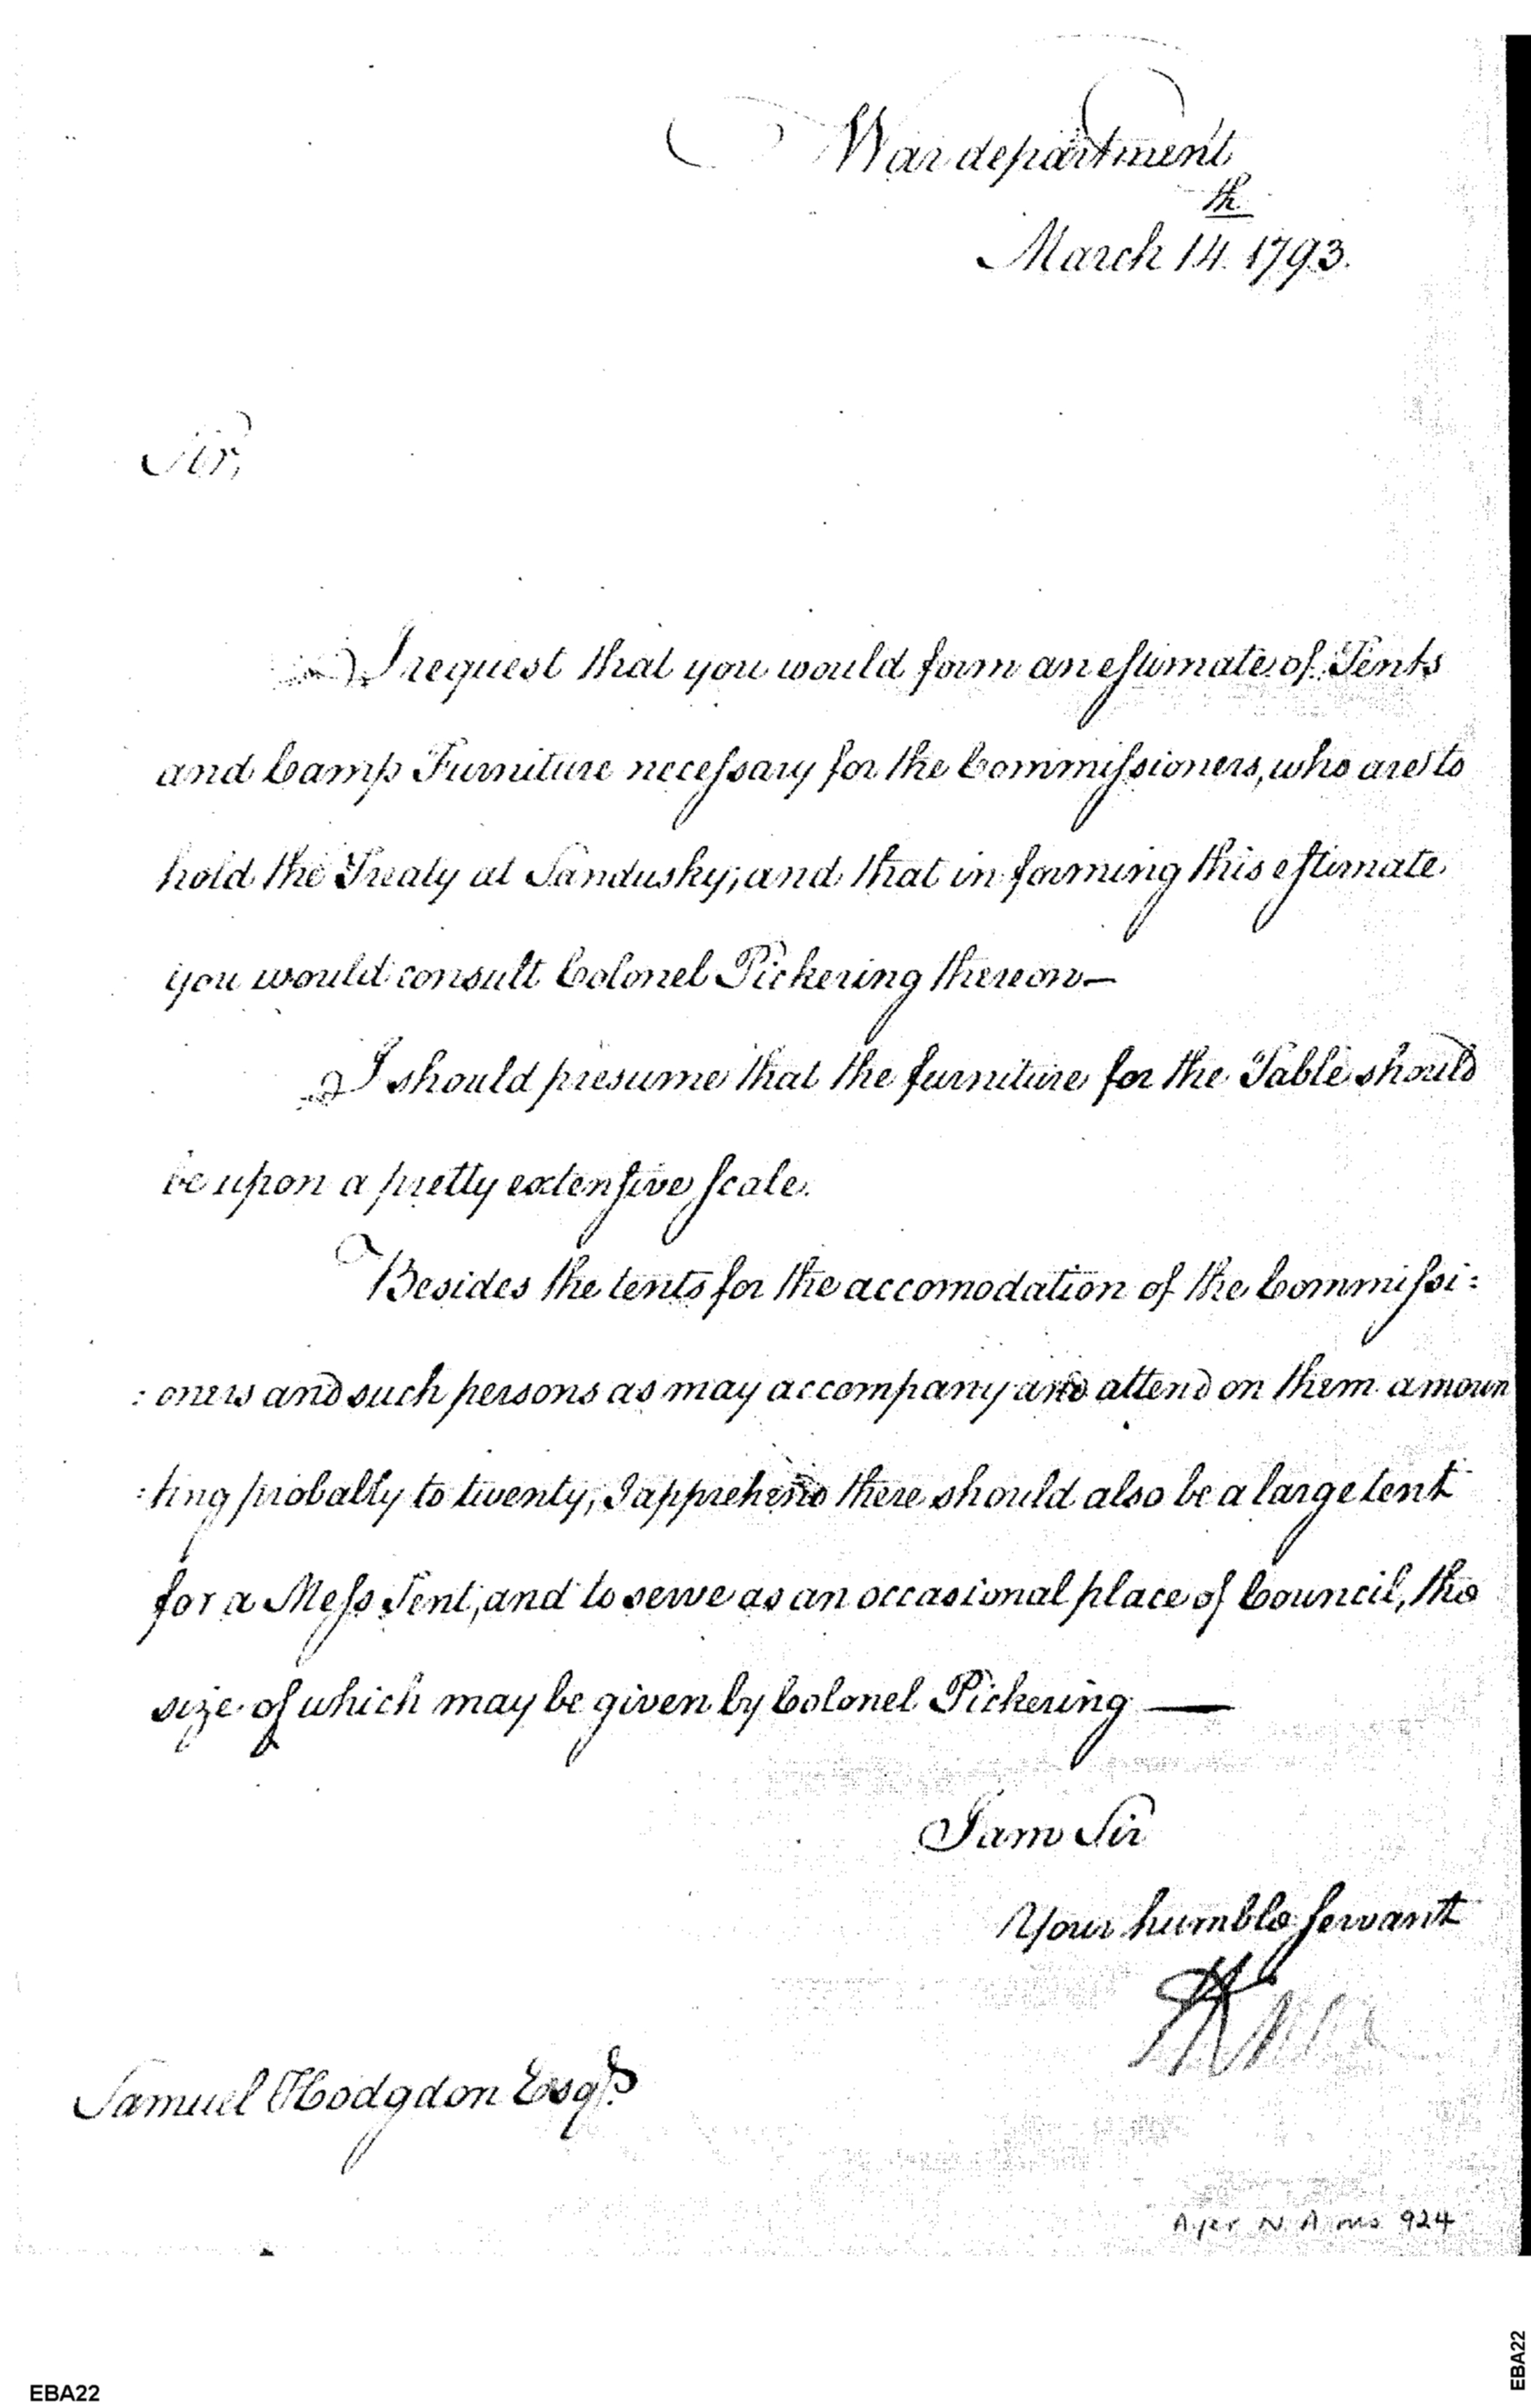 War department
March 14.th 1793.
Sir,
I request that you would form an estimate of Tents
and Camp Furniture necessary for the Commissioners, who are to
hold the Treaty at Sandusky; and that in forming this estimate
you would consult Colonel Pickering thereon—
I should presume that the furniture for the Table should
be upon a pretty extensive scale.
Besides the tents for the accomodation of the Commissi:
: oners and such persons as may accompany and attend on them amoun
: ting probally to twenty, I apprehend there should also be a large tent
for a Mess Tent, and to serve as an occasional place of Council, the
size of which may be given by Colonel Pickering —
I am Sir
Your humble servant
HKnox
Samuel Hodgdon Esqr.
Ayer N A ms 924
EBA22
EBA22